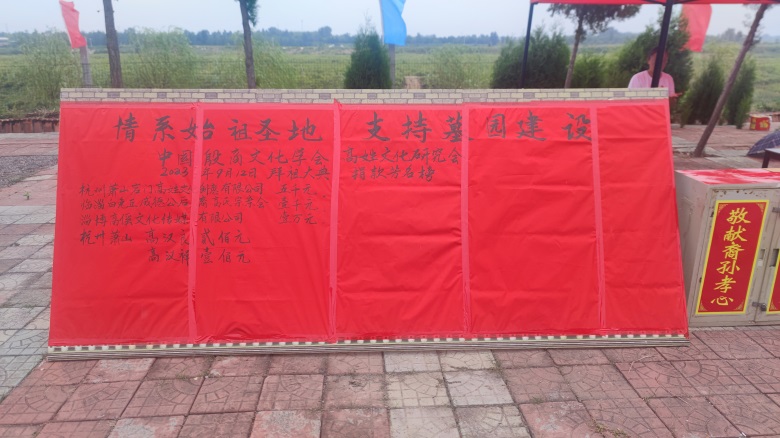 情系始祖圣地 支持墓园建设
中国殷商文化学会 高姓文化研究会
2023年9月12日 拜祖大典 捐款芳名榜
杭州萧山 门高 有限公司 五千元
临淄 高 学会 壹千元
淄博高 文化传 有限公司 壹万元
杭州萧山 高汉 贰佰元
高汉 壹佰元
敬献裔孙孝心